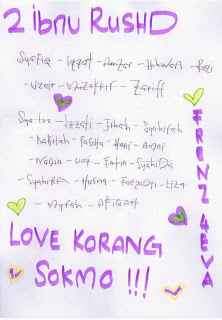 2 ibnu RUSHD
Syafiq - Izzat - Amzar - Ikhwan - Razi
- Uzair - Muzakkir - Zariff
Sya Izz - Izzati - Jihah - Syahirah
- Nabilah - Fasiha - Hani - Anati
- Nadia - - Fatin - Syahida
- Syahira - Husna - - Liza
- Myrah - Afiqah
FRENZ 4EVA
LOVE KORANG
SOKMO !!!